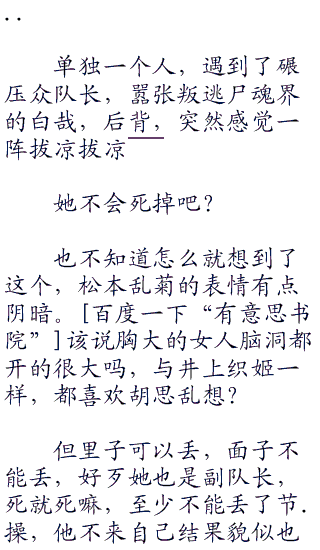 ..
单独一个人，遇到了碾
压众队长，嚣张叛逃尸魂界
的白哉，后背，突然感觉一
阵拔凉拔凉
她不会死掉吧？
也不知道怎么就想到了
这个，松本乱菊的表情有点
阴暗。[百度一下“有意思书
院”]该说胸大的女人脑洞都
开的很大吗，与井上织姬一
样，都喜欢胡思乱想？
但里子可以丢，面子不
能丢，好歹她也是副队长，
死就死嘛，至少不能丢了节.
操，他不来自己结果貌似也